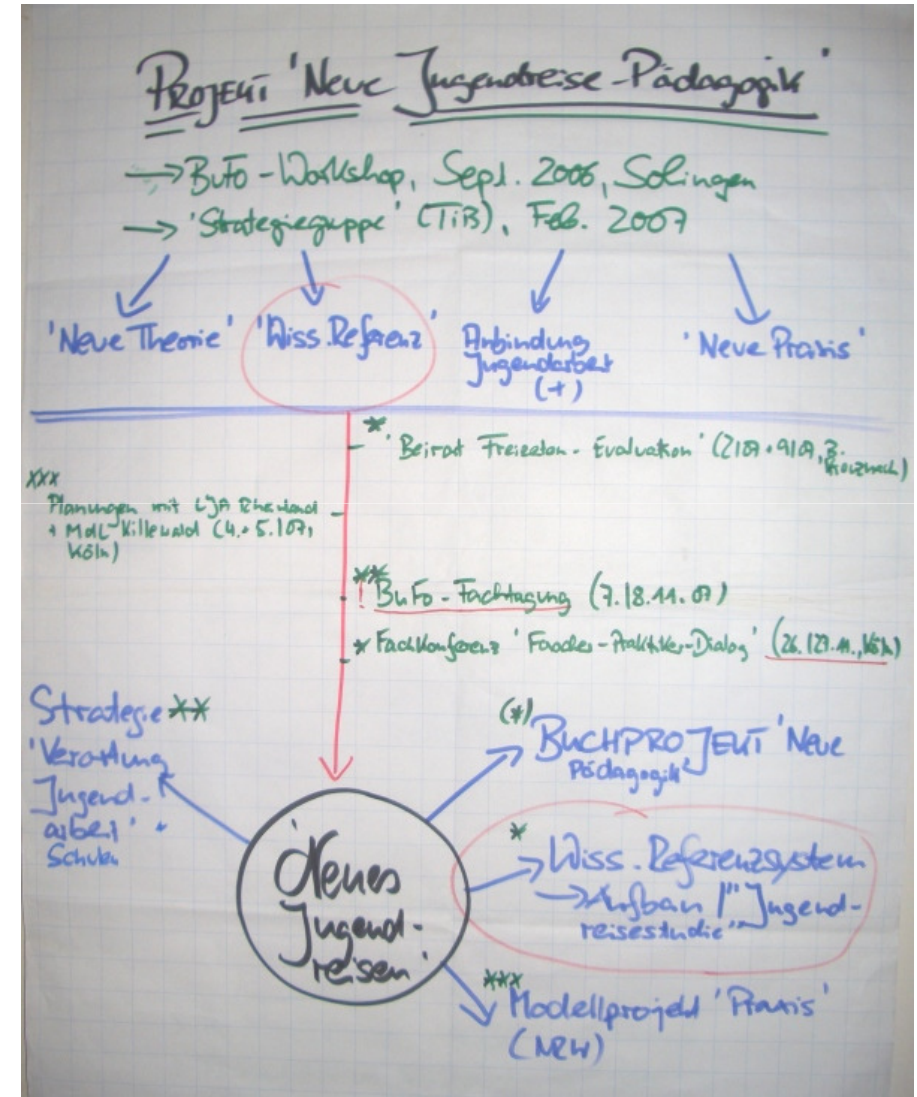 PROJEKT 'Neue Jugendreise-Pädagogik'
→ BuFo-Workshop, Sept. 2006, Solingen
→ 'Strategiegruppe' (TiB), Feb. 2007
'Neue Theorie'
'Wiss. Referenz'
Anbindung
Jugendarbeit
(+)
'Neue Praxis'
*
'Beirat Freizeiten-Evaluation' (2/07 + 9/07, B.
Kreuznach)
XXX
Planungen mit LJA Rheinland
+ MdL Killewald (4. + 5./07,
Köln)
**
! BuFo-Fachtagung (7./8.11.07)
* Fachkonferenz 'Forscher-Praktiker-Dialog' (26./27.11., Köln)
Strategie **
'Verortung
Jugend-
arbeit' +
Schulen
(*)
BUCHPROJEKT 'Neue
Pädagogik'
*
Wiss. Referenzsystem
→ Aufbau / "Jugend-
reisestudie"
'Neues
Jugend-
reisen'
***
Modellprojekt 'Praxis'
(NRW)